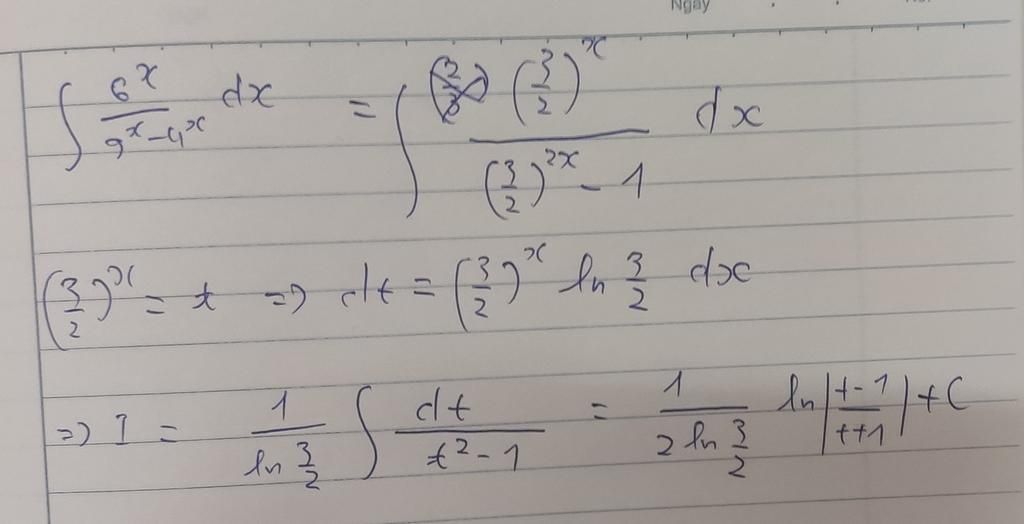 Ngày
∫ 6^x/(9^x - 4^x) dx = ∫ (3/2)^x / ((3/2)^{2x} - 1) dx
(3/2)^x = t => dt = (3/2)^x ln 3/2 dx
=> I = 1/(ln 3/2) ∫ dt/(t^2 - 1) = 1/(2 ln 3/2) ln |(t-1)/(t+1)| + C